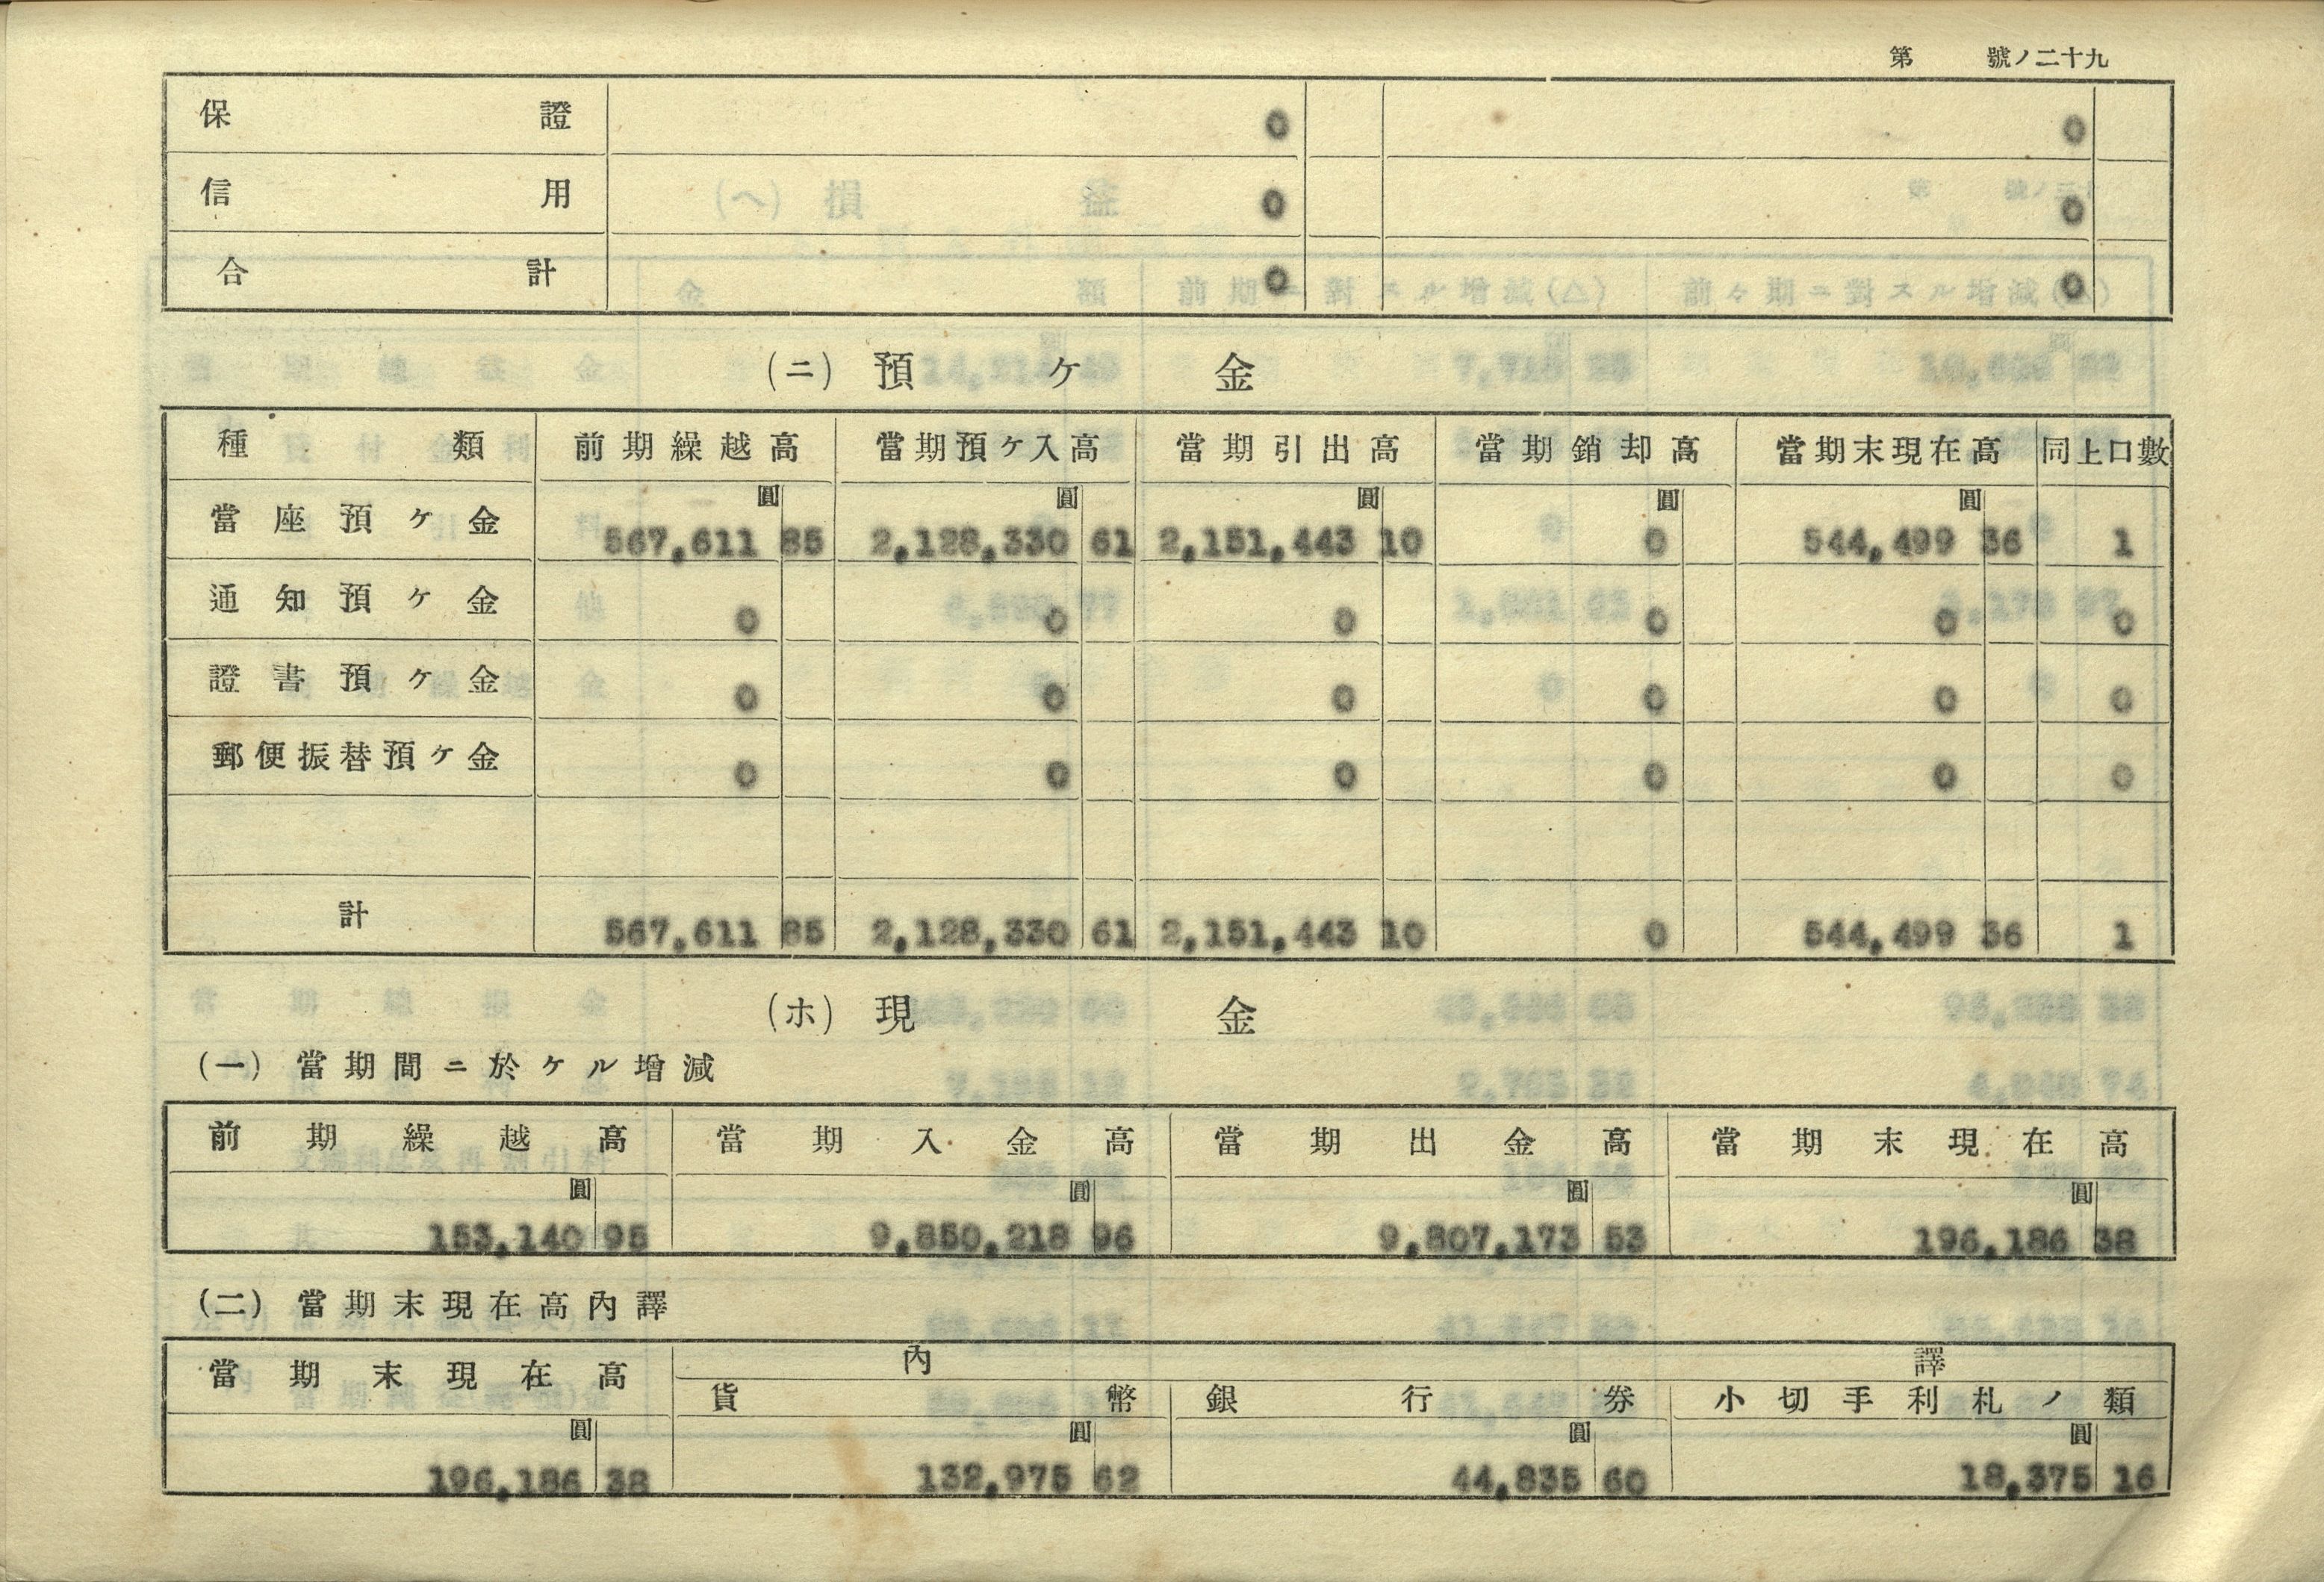 第 號ノ二十九
保證 0 0
信用 0 0
合計 0 0
(ニ) 預ケ金
種類 前期繰越高 當期預ケ入高 當期引出高 當期銷却高 當期末現在高 同上口數
圓 圓 圓 圓 圓
當座預ケ金 567,611 85 2,128,330 61 2,151,443 10 0 544,499 36 1
通知預ケ金 0 0 0 0 0 0
證書預ケ金 0 0 0 0 0 0
郵便振替預ケ金 0 0 0 0 0 0
計 567,611 85 2,128,330 61 2,151,443 10 0 544,499 36 1
(ホ) 現金
(一) 當期間ニ於ケル增減
前期繰越高 當期入金高 當期出金高 當期末現在高
圓 圓 圓 圓
153,140 95 9,850,218 96 9,807,173 53 196,186 38
(二) 當期末現在高內譯
當期末現在高 內譯
貨幣 銀行券 小切手利札ノ類
圓 圓 圓 圓
196,186 38 132,975 62 44,835 60 18,375 16